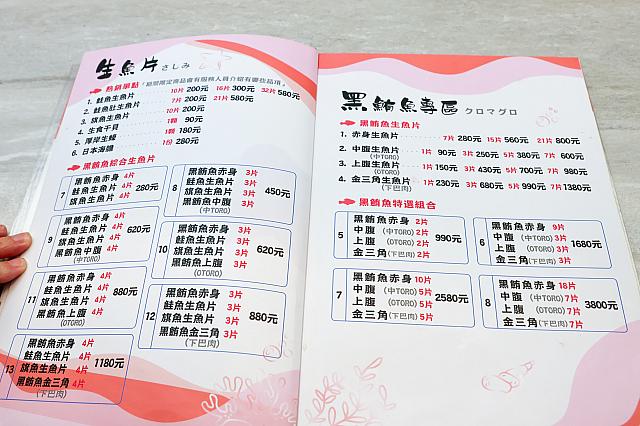 生魚片 さしみ
熱銷單點
1. 鮭魚生魚片 10片 200元 16片 300元 32片 580元
2. 鮭魚肚生魚片 7片 200元 21片 580元
3. 旗魚生魚片 10片 200元
4. 生食干貝 1顆 90元
5. 厚岸生蠔 1顆 180元
6. 日本海膽 1份 280元
黑鮪魚綜合生魚片
7 黑鮪魚赤身 4片
鮭魚生魚片 4片
旗魚生魚片 4片
280元
8 黑鮪魚赤身 3片
鮭魚生魚片 3片
旗魚生魚片 3片
黑鮪魚中腹 3片
(中TORO)
450元
9 黑鮪魚赤身 4片
鮭魚生魚片 4片
旗魚生魚片 4片
黑鮪魚中腹 4片
(中TORO)
620元
10 黑鮪魚赤身 3片
鮭魚生魚片 3片
旗魚生魚片 3片
黑鮪魚上腹 3片
(OTORO)
620元
11 黑鮪魚赤身 4片
鮭魚生魚片 4片
旗魚生魚片 4片
黑鮪魚上腹 4片
(OTORO)
880元
12 黑鮪魚赤身 3片
鮭魚生魚片 3片
旗魚生魚片 3片
黑鮪魚金三角 3片
(下巴肉)
880元
13 黑鮪魚赤身 4片
鮭魚生魚片 4片
旗魚生魚片 4片
黑鮪魚金三角 4片
(下巴肉)
1180元
黑鮪魚專區 クロマグロ
黑鮪魚生魚片
1. 赤身生魚片 7片 280元 15片 560元 21片 800元
2. 中腹生魚片 1片 90元 3片 250元 5片 380元 7片 600元
(中TORO)
3. 上腹生魚片 1片 150元 3片 430元 5片 700元 7片 980元
(OTORO)
4. 金三角生魚片 1片 230元 3片 680元 5片 990元 7片 1380元
(下巴肉)
黑鮪魚特選組合
5 黑鮪魚赤身 2片
中腹 (中TORO) 2片
上腹 (OTORO) 2片
金三角 (下巴肉) 2片
990元
6 黑鮪魚赤身 9片
中腹 (中TORO) 3片
上腹 (OTORO) 3片
金三角 (下巴肉) 3片
1680元
7 黑鮪魚赤身 10片
中腹 (中TORO) 5片
上腹 (OTORO) 5片
金三角 (下巴肉) 5片
2580元
8 黑鮪魚赤身 18片
中腹 (中TORO) 7片
上腹 (OTORO) 7片
金三角 (下巴肉) 7片
3800元